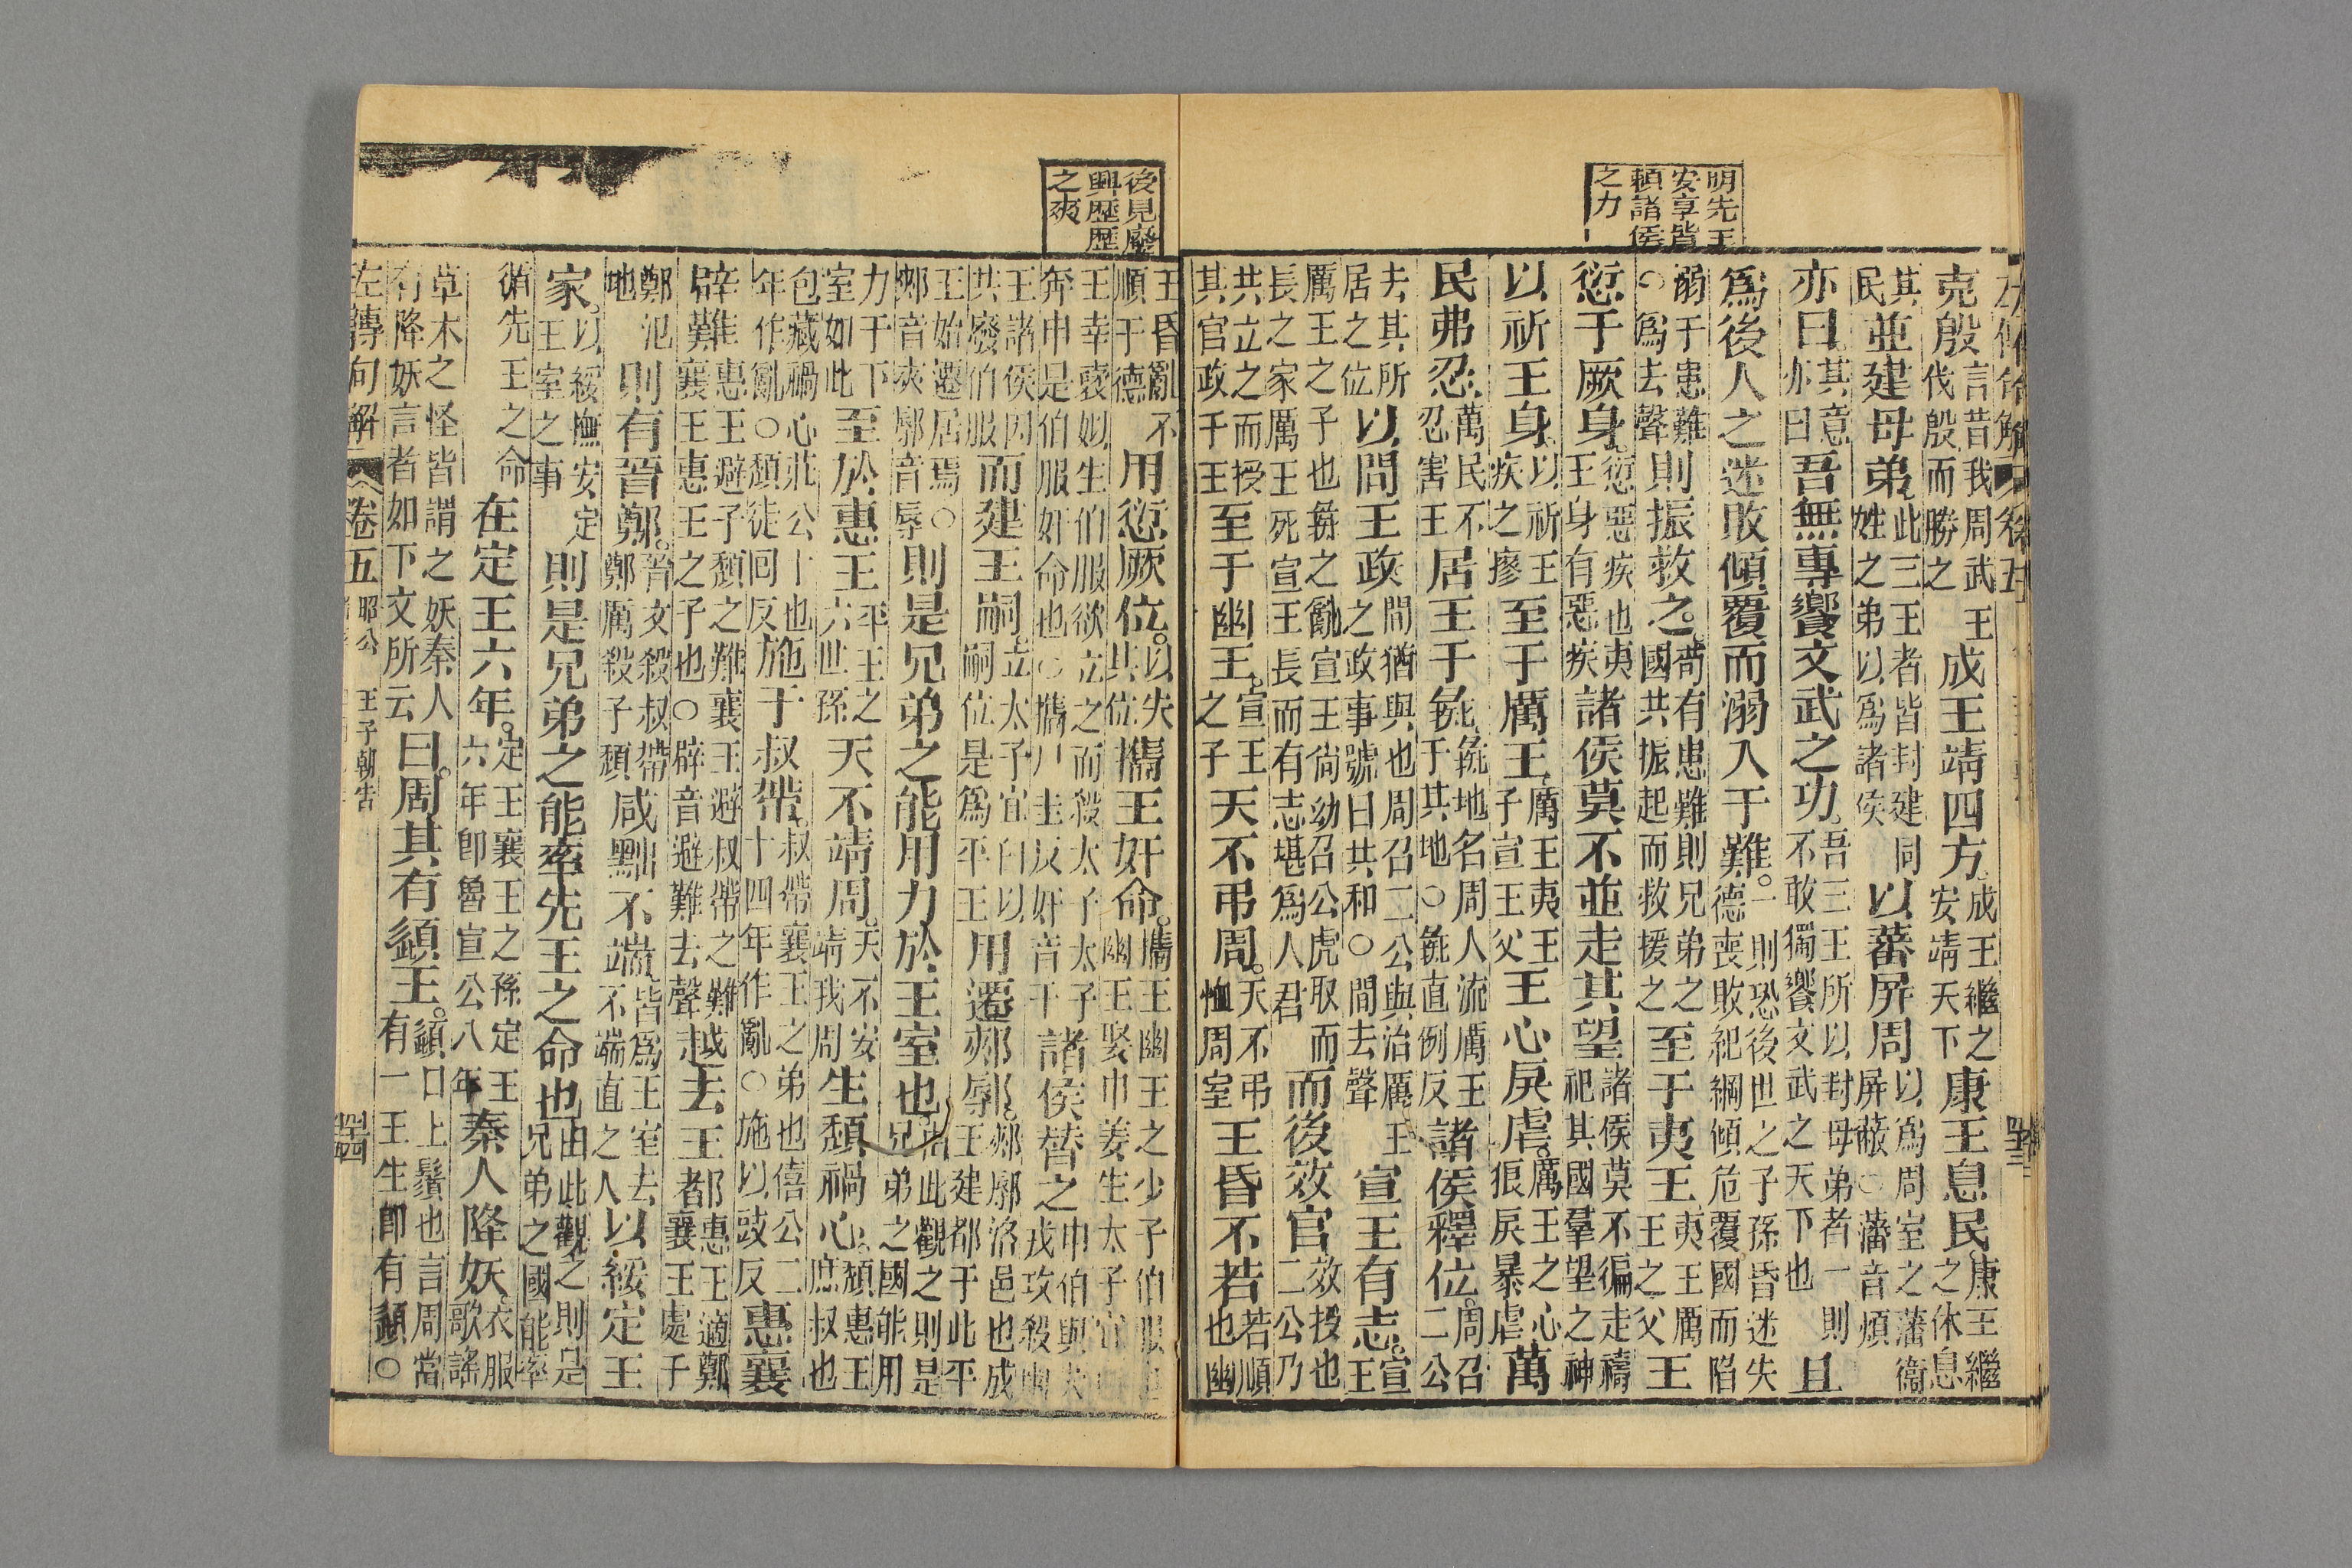 明先王
安享皆
賴諸侯
之力
克殷言昔我周武王伐殷而勝之成王靖四方成王繼之安靖天下康王息民康王繼之休息
其民並建母弟此三王者皆封建同姓之弟以爲諸侯以蕃屏周以爲周室之藩衛屏蔽○藩音煩
亦曰其意亦曰吾無專饗文武之功吾三王所以封母弟者一則不敢獨饗文武之天下也且
爲後人之迷敗傾覆而溺入于難一則恐後世之子孫昏迷失德喪敗祀綱傾危覆國而陷
溺于患難○爲去聲則振救之苟有患難則兄弟之國共振起而救援之至于夷王夷王厲王之父王
愆于厥身愆惡疾也夷王身有惡疾諸侯莫不並走其望諸侯莫不徧走禱祀其國羣望之神
以祈王身以祈王疾之瘳至于厲王厲王夷王子宣王父王心戾虐厲王之心狠戾暴虐萬
民弗忍萬民不忍害王居王于彘彘地名周人流厲王于其地○彘直例反諸侯釋位周召二公
去其所居之位以間王政間猶與也周召二公與治厲王之政事號曰共和○間去聲宣王有志宣王
厲王之子也彘之亂宣王尚幼召公虎取而長之家厲王死宣王長而有志堪爲人君而後效官效授也二公乃
共立之而授其官政于王至于幽王宣王之子天不弔周天不弔恤周室王昏不若若順也幽
後見廢
興歷歷
之爽
王昏亂不順于德用愆厥位以失其位攜王奸命攜王幽王之少子伯服也幽王娶申姜生太子宜臼
王幸褒姒生伯服欲立之而殺太子太子奔申是伯服奸命也○攜戶圭反奸音干諸侯替之申伯與犬戎攻殺幽
王諸侯因共廢伯服而建王嗣立太子宜臼以嗣位是爲平王用遷郟鄏郟鄏洛邑也成王建都于此平
王始遷居焉○郟音夾鄏音辱則是兄弟之能用力於王室也由此觀之則是兄弟之國能用
力于下室如此至於惠王平王之六世孫天不靖周天不安靖我周生頹禍心頹惠王庶叔也
包藏禍心莊公十年作亂○頹徒回反也施于叔帶叔帶襄王之弟也僖公二十四年作亂○施以豉反惠襄
辟難惠王避子頹之難襄王避叔帶之難襄王惠王之子也○辟音避難去聲越去王都惠王適鄭襄王處于
鄭氾地則有晉鄭晉文殺叔帶鄭厲殺子頹咸黜不端皆爲王室去不端直之人以綏定王
家以綏撫安定王室之事則是兄弟之能率先王之命也由此觀之則是兄弟之國能率
循先王之命在定王六年定王襄王之孫定王六年即魯宣公八年秦人降妖衣服歌謠
草木之怪皆謂之妖秦人有降妖言者如下文所云曰周其有頿王頿口上鬚也言周當有一王生即有頿○
左傳句解 卷五 昭公 王子朝告 四十四